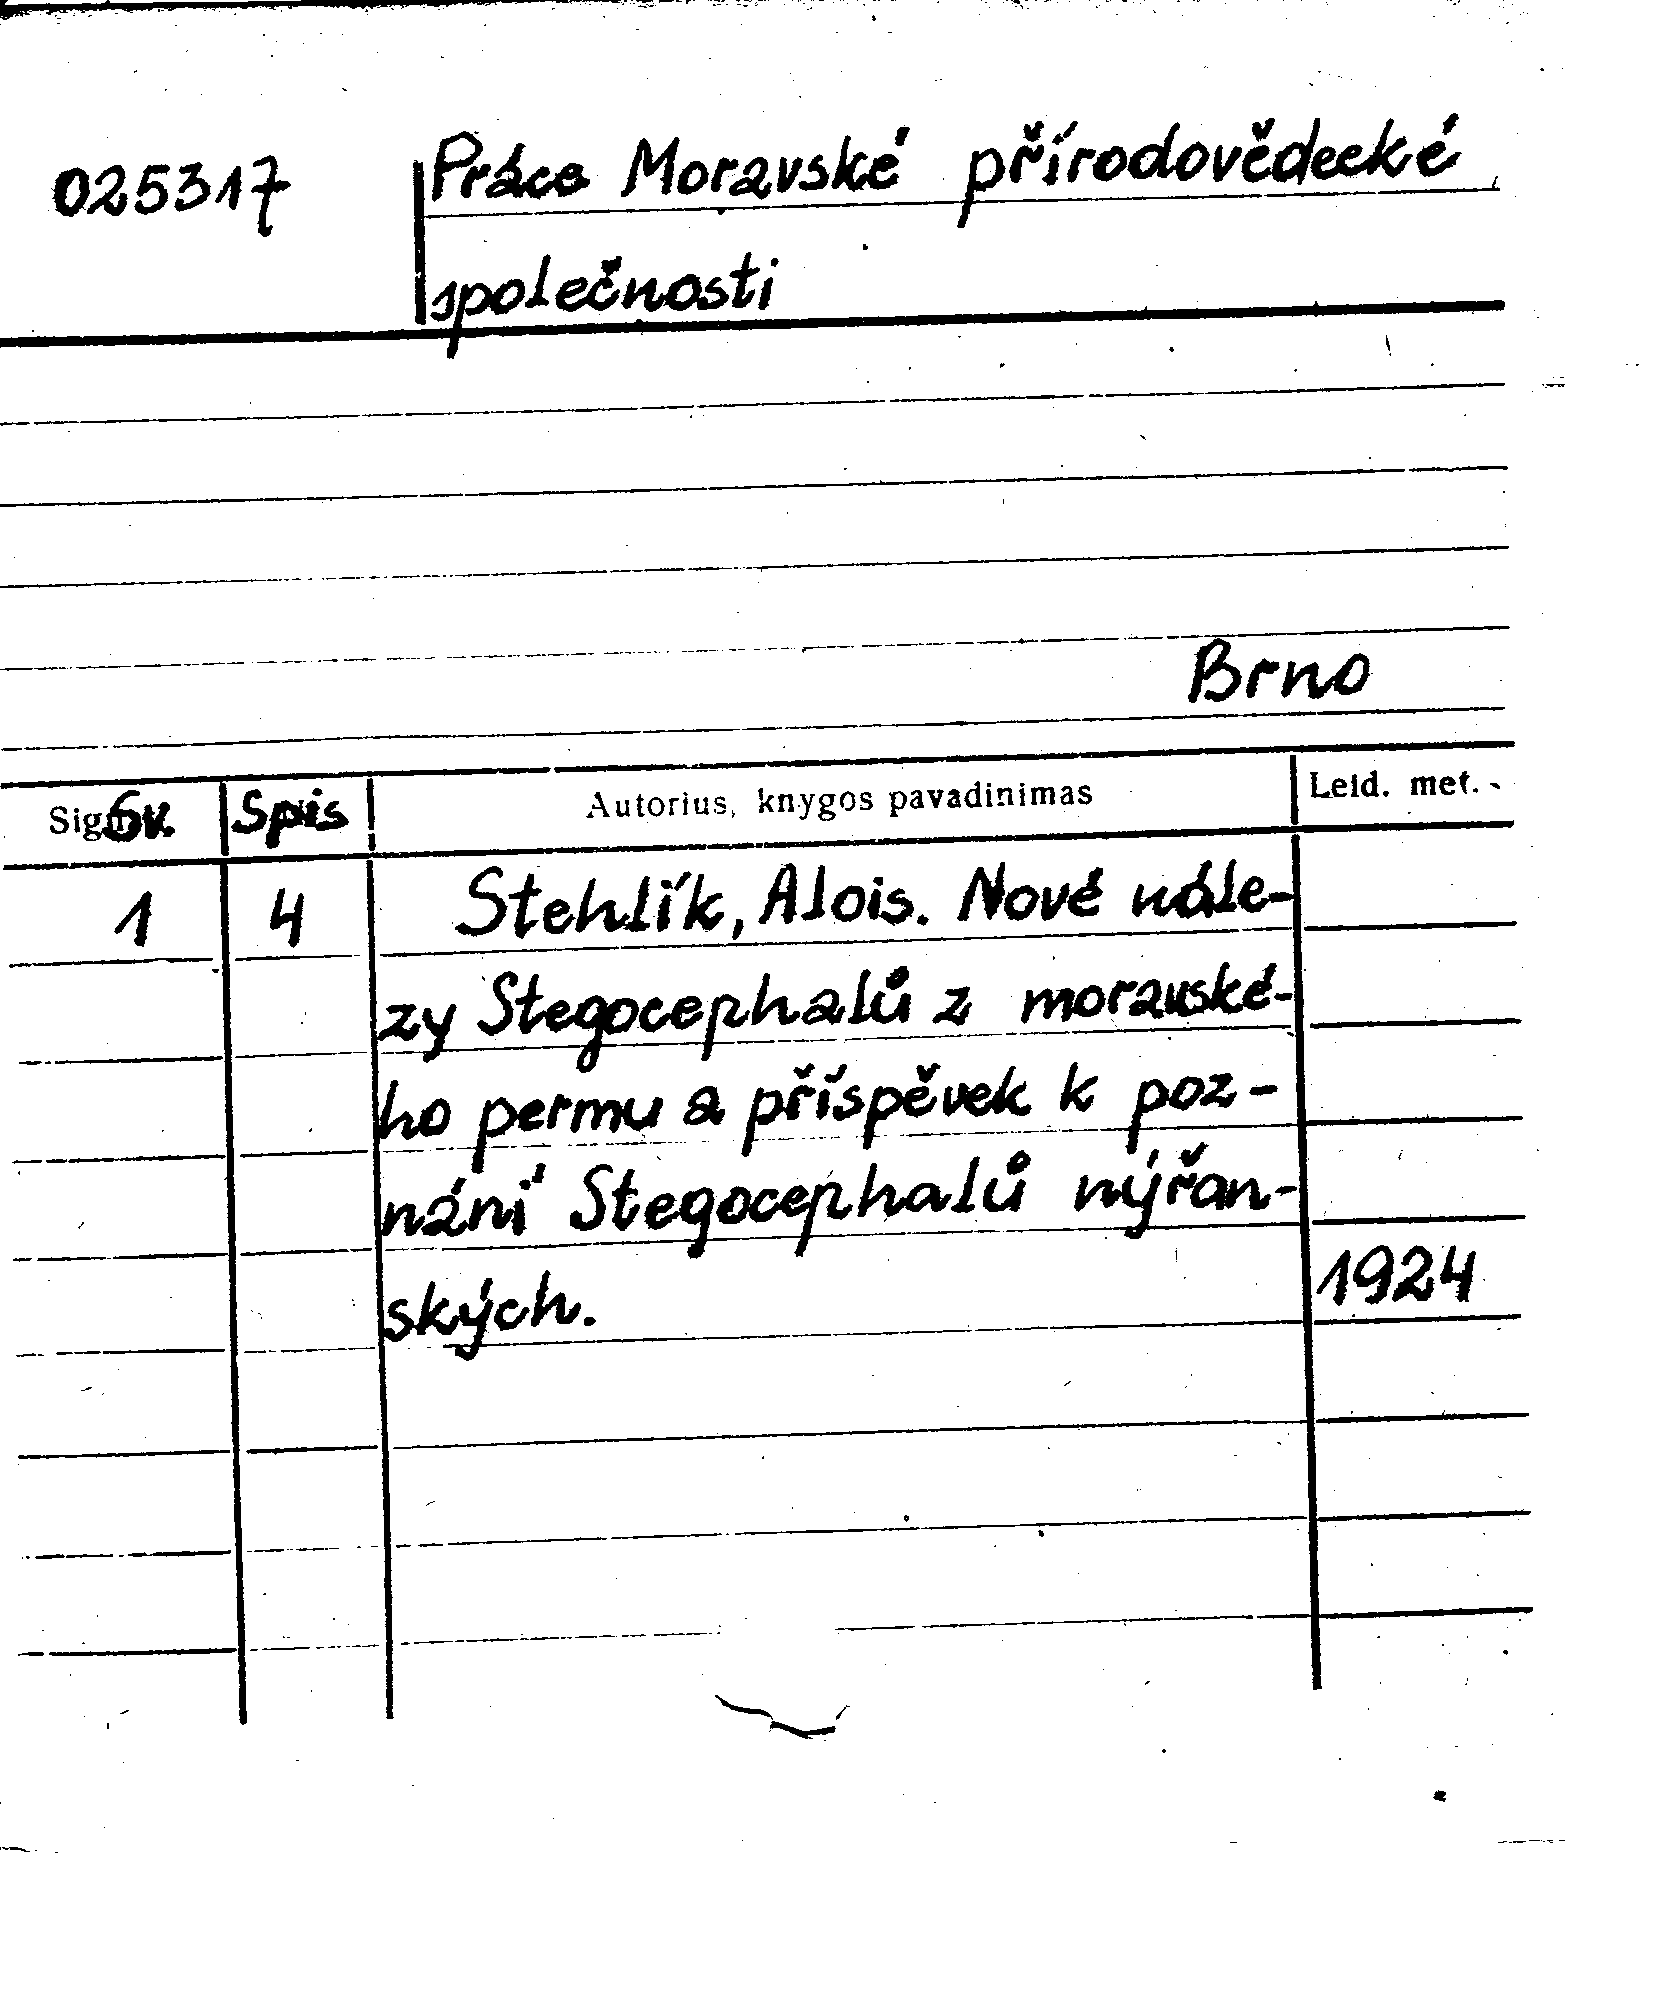 025317 Práce Moravské přírodovědecké
společnosti
Brno
Sv. Spis Autorius, knygos pavadinimas Leid. met.
1 4 Stehlík, Alois. Nové nále-
zy Stegocephalů z moravské-
ho permu a příspěvek k poz-
nání Stegocephalů nýřan-
ských. 1924